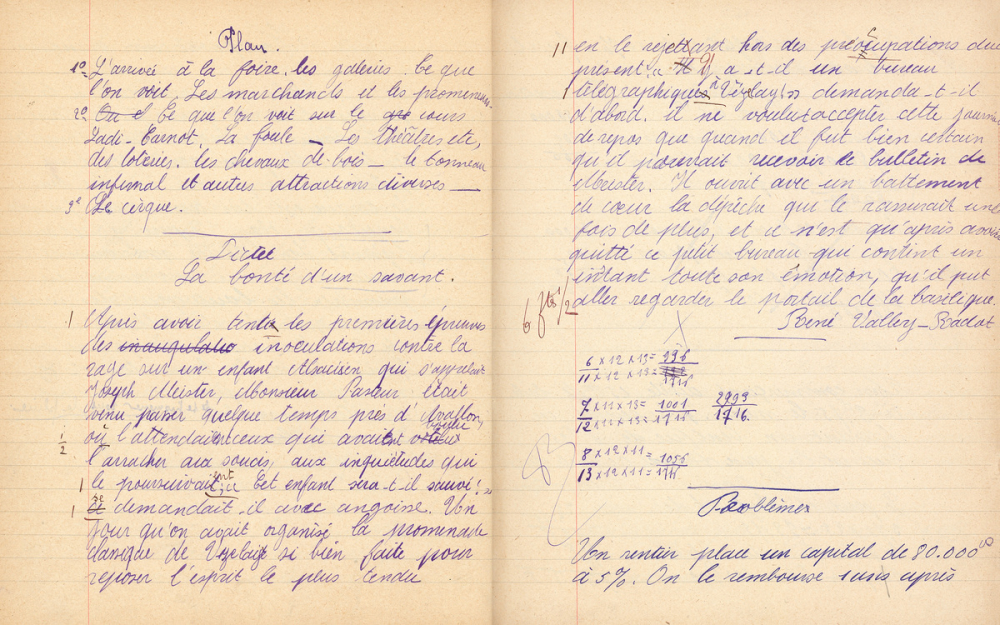 Plan.
1º L'arrivée à la foire. les galeries. Ce que
l'on voit. Les marchands et les promeneurs.
2º Ce que l'on voit sur le cours
Sadi-Carnot. La foule — Les théâtres etc,
des loteries. les chevaux de bois — le tonneau
infernal et autres attractions diverses —
3º Le cirque.
Dictée
La bonté d'un savant.
1 Après avoir tenté les premières épreuves
des inoculations contre la
rage sur un enfant Alsacien qui s'appelait
Joseph Meister, Monsieur Pasteur était
venu passer quelque temps près d'Avallon,
1/2 où l'attendaient ceux qui avaient voulu
l'arracher aux soucis, aux inquiétudes qui
1 le poursuivaient; Cet enfant sera-t-il sauvé?
1 se demandait-il avec angoisse. Un
jour qu'on avait organisé la promenade
classique de Vezelay si bien faite pour
reposer l'esprit le plus tendu
11 en le rejetant hors des préoccupations du
présent. a-t-il un bureau
1 télégraphique à Vézelay? demanda-t-il
d'abord. il ne voulut accepter cette journée
de repos que quand il fut bien certain
qu'il pourrait recevoir le bulletin de
Meister. Il ouvrit avec un battement
de cœur la dépêche qui le rassurait une
fois de plus, et ce n'est qu'après avoir
quitté ce petit bureau qui contint un
instant toute son émotion, qu'il put
aller regarder le portail de la basilique.
6 ftes 1/2
René Vallery-Radot
6/11 × 12 × 13 = 936
× 12 × 13 = 1711
7/12 × 11 × 13 = 1001/1711 2993/1716.
× 11 × 13 =
8/13 × 12 × 11 = 1056
× 12 × 11 =
Problèmes
Un rentier place un capital de 80.000
à 5%. On le rembourse 1 ans après